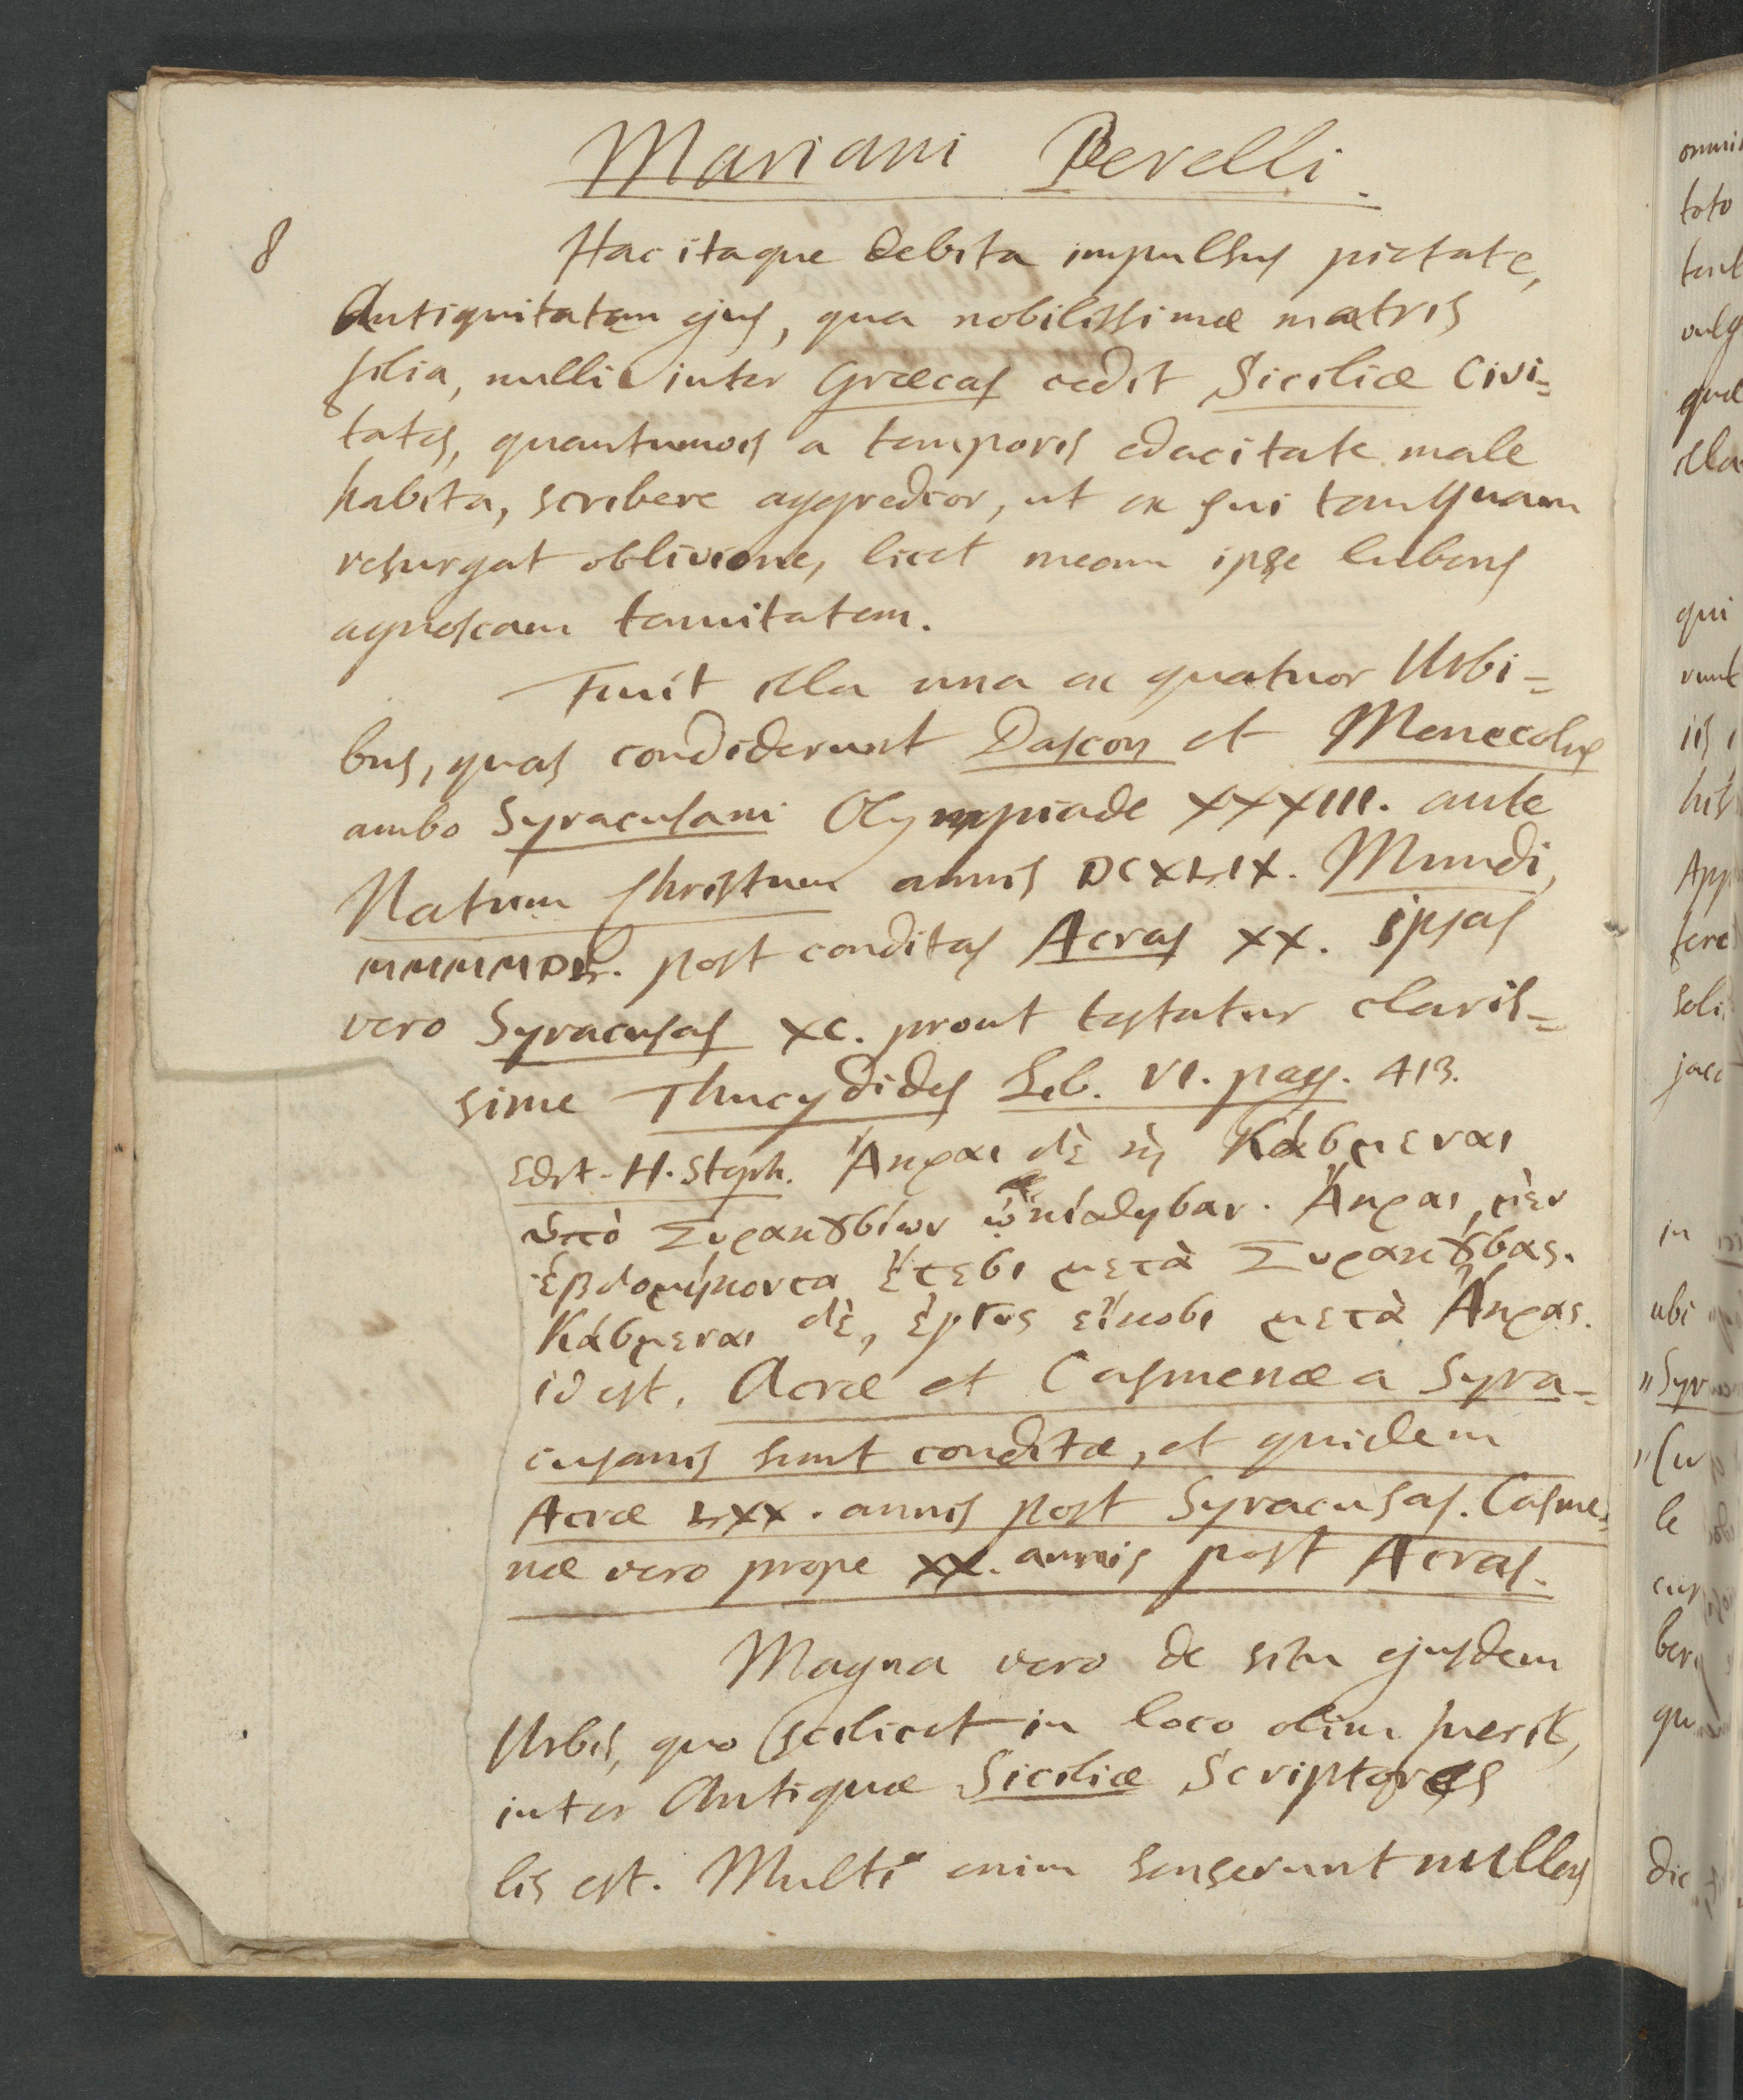 Mariani Perelli.
8
Hac itaque debita impulsus pietate,
Antiquitatem ejus, qua nobilissimæ matris
filia, nulli inter Græcas cedit Siciliæ Civi=
tates, quantumvis a temporis edacitate male
habita, scribere aggredior, ut ex sui tamquam
resurgat oblivione, licet meam ipse lubens
agnoscam tenuitatem.
Fuit illa una ex quatuor Urbi=
bus, quas condiderunt Dascon et Menecolus
ambo Syracusani Olympiade XXXIII. ante
Natum Christum annis DCXLIX. Mundi,
post conditas Acras XX. ipsas
vero Syracusas XC. prout testatur claris=
sime Thucydides Lib. VI. pag. 413.
Edit. H. Steph. Ἄκραι δὲ ϗ Κάσμεναι
ὑπὸ Συρακȣσίων ᾠκίσθησαν. Ἄκραι, μὲν
ἑβδομήκοντα ἔτεσι μετὰ Συρακȣσας.
Κάσμεναι δὲ, ἐγγὺς εἴκοσι μετὰ Ἄκρας.
id est, Acræ et Casmenæ a Syra=
cusanis sunt conditæ, et quidem
Acræ LXX. annis post Syracusas. Casme=
næ vero prope XX. annis post Acras.
Magna vero de situ ejusdem
Urbis, quo scilicet in loco olim fuerit,
inter Antiquæ Siciliæ Scriptores
lis est. Multi enim senserunt nullos
omni
toto
vulg
quæ
illa
qui
runt
iis
his
App
fere
soli
jace
in
ubi
"Syr
le
cus
ber
qu
dic